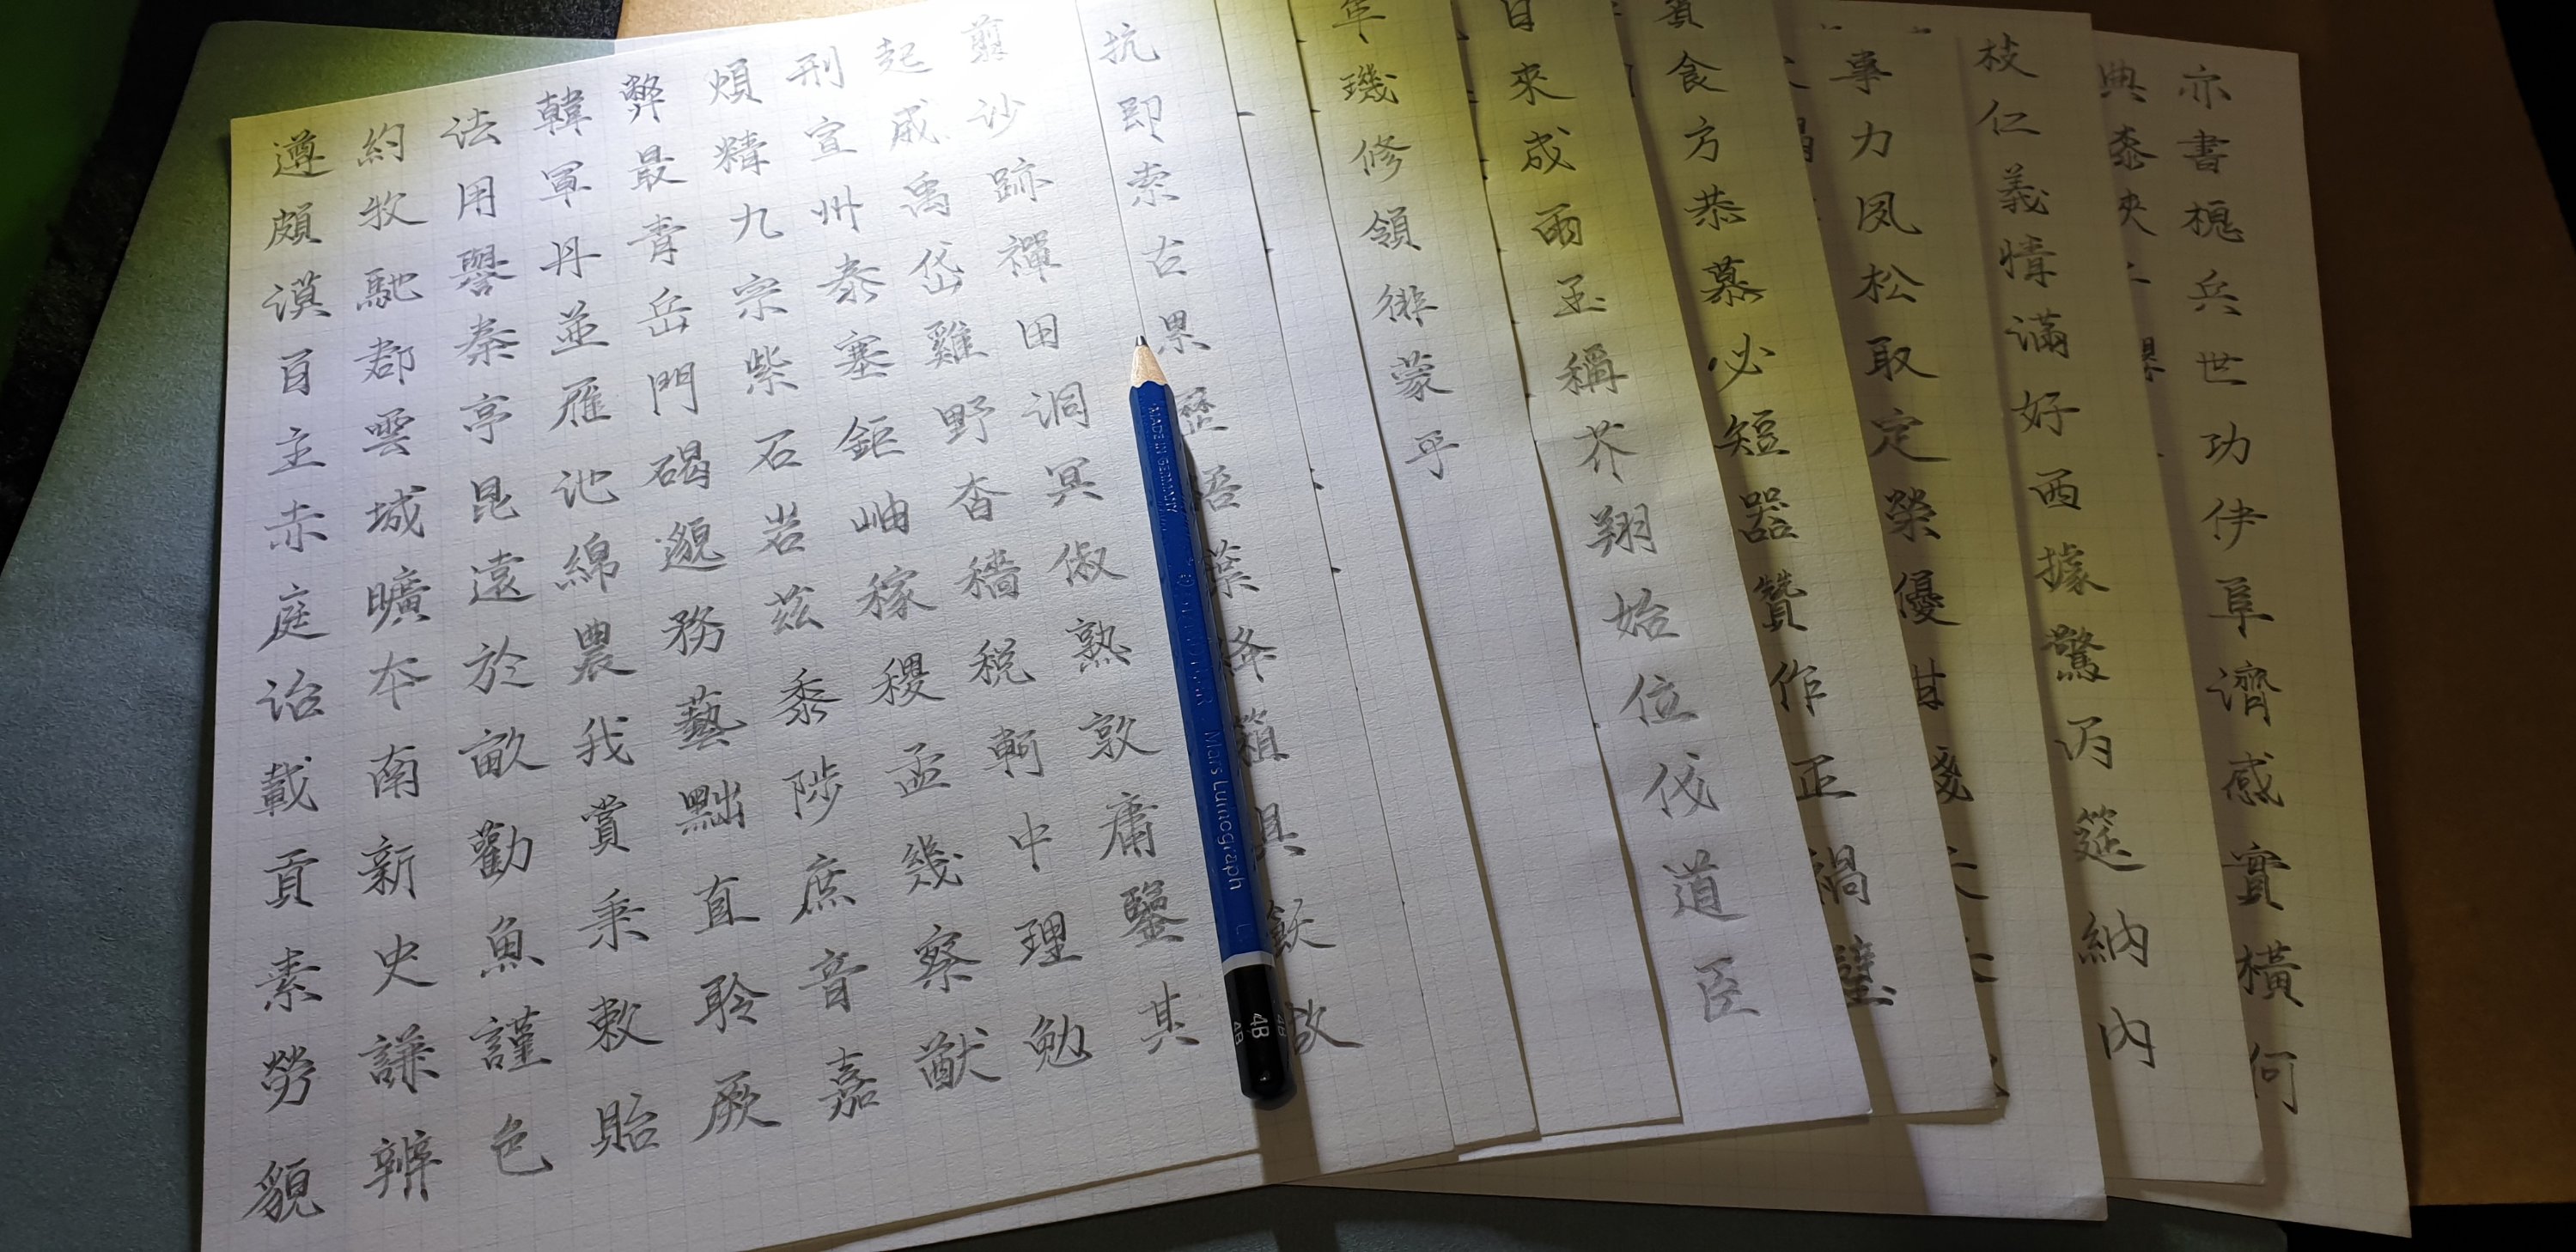 遵約法韓弊煩刑起翦
頗牧用軍最精宣威沙
漠馳譽丹青九州禹跡
百郡秦並岳宗泰岱禪
主雲亭雁門紫塞雞田
赤城昆池碣石鉅野洞
庭曠遠綿邈岩岫杳冥
治夲於農務茲稼穡俶
載南畝我藝黍稷稅熟
貢新勸賞黜陟孟軻敦
素史魚秉直庶幾中庸
勞謙謹敕聆音察理鑒
貌辨色貽厥嘉猷勉其
抗即索古累歷梧葉絳箱具飫故
璣修領徘蒙乎
日來成雨玉稱芥翔始位伐道臣
食方恭慕必短器贊作正禍璧
事力夙松取定榮優甘
枝仁義情滿好西據驚丙筵納內
典
亦書槐兵世功伊阜濟感實橫何
MADE IN GERMANY
Mars Lumograph
4B